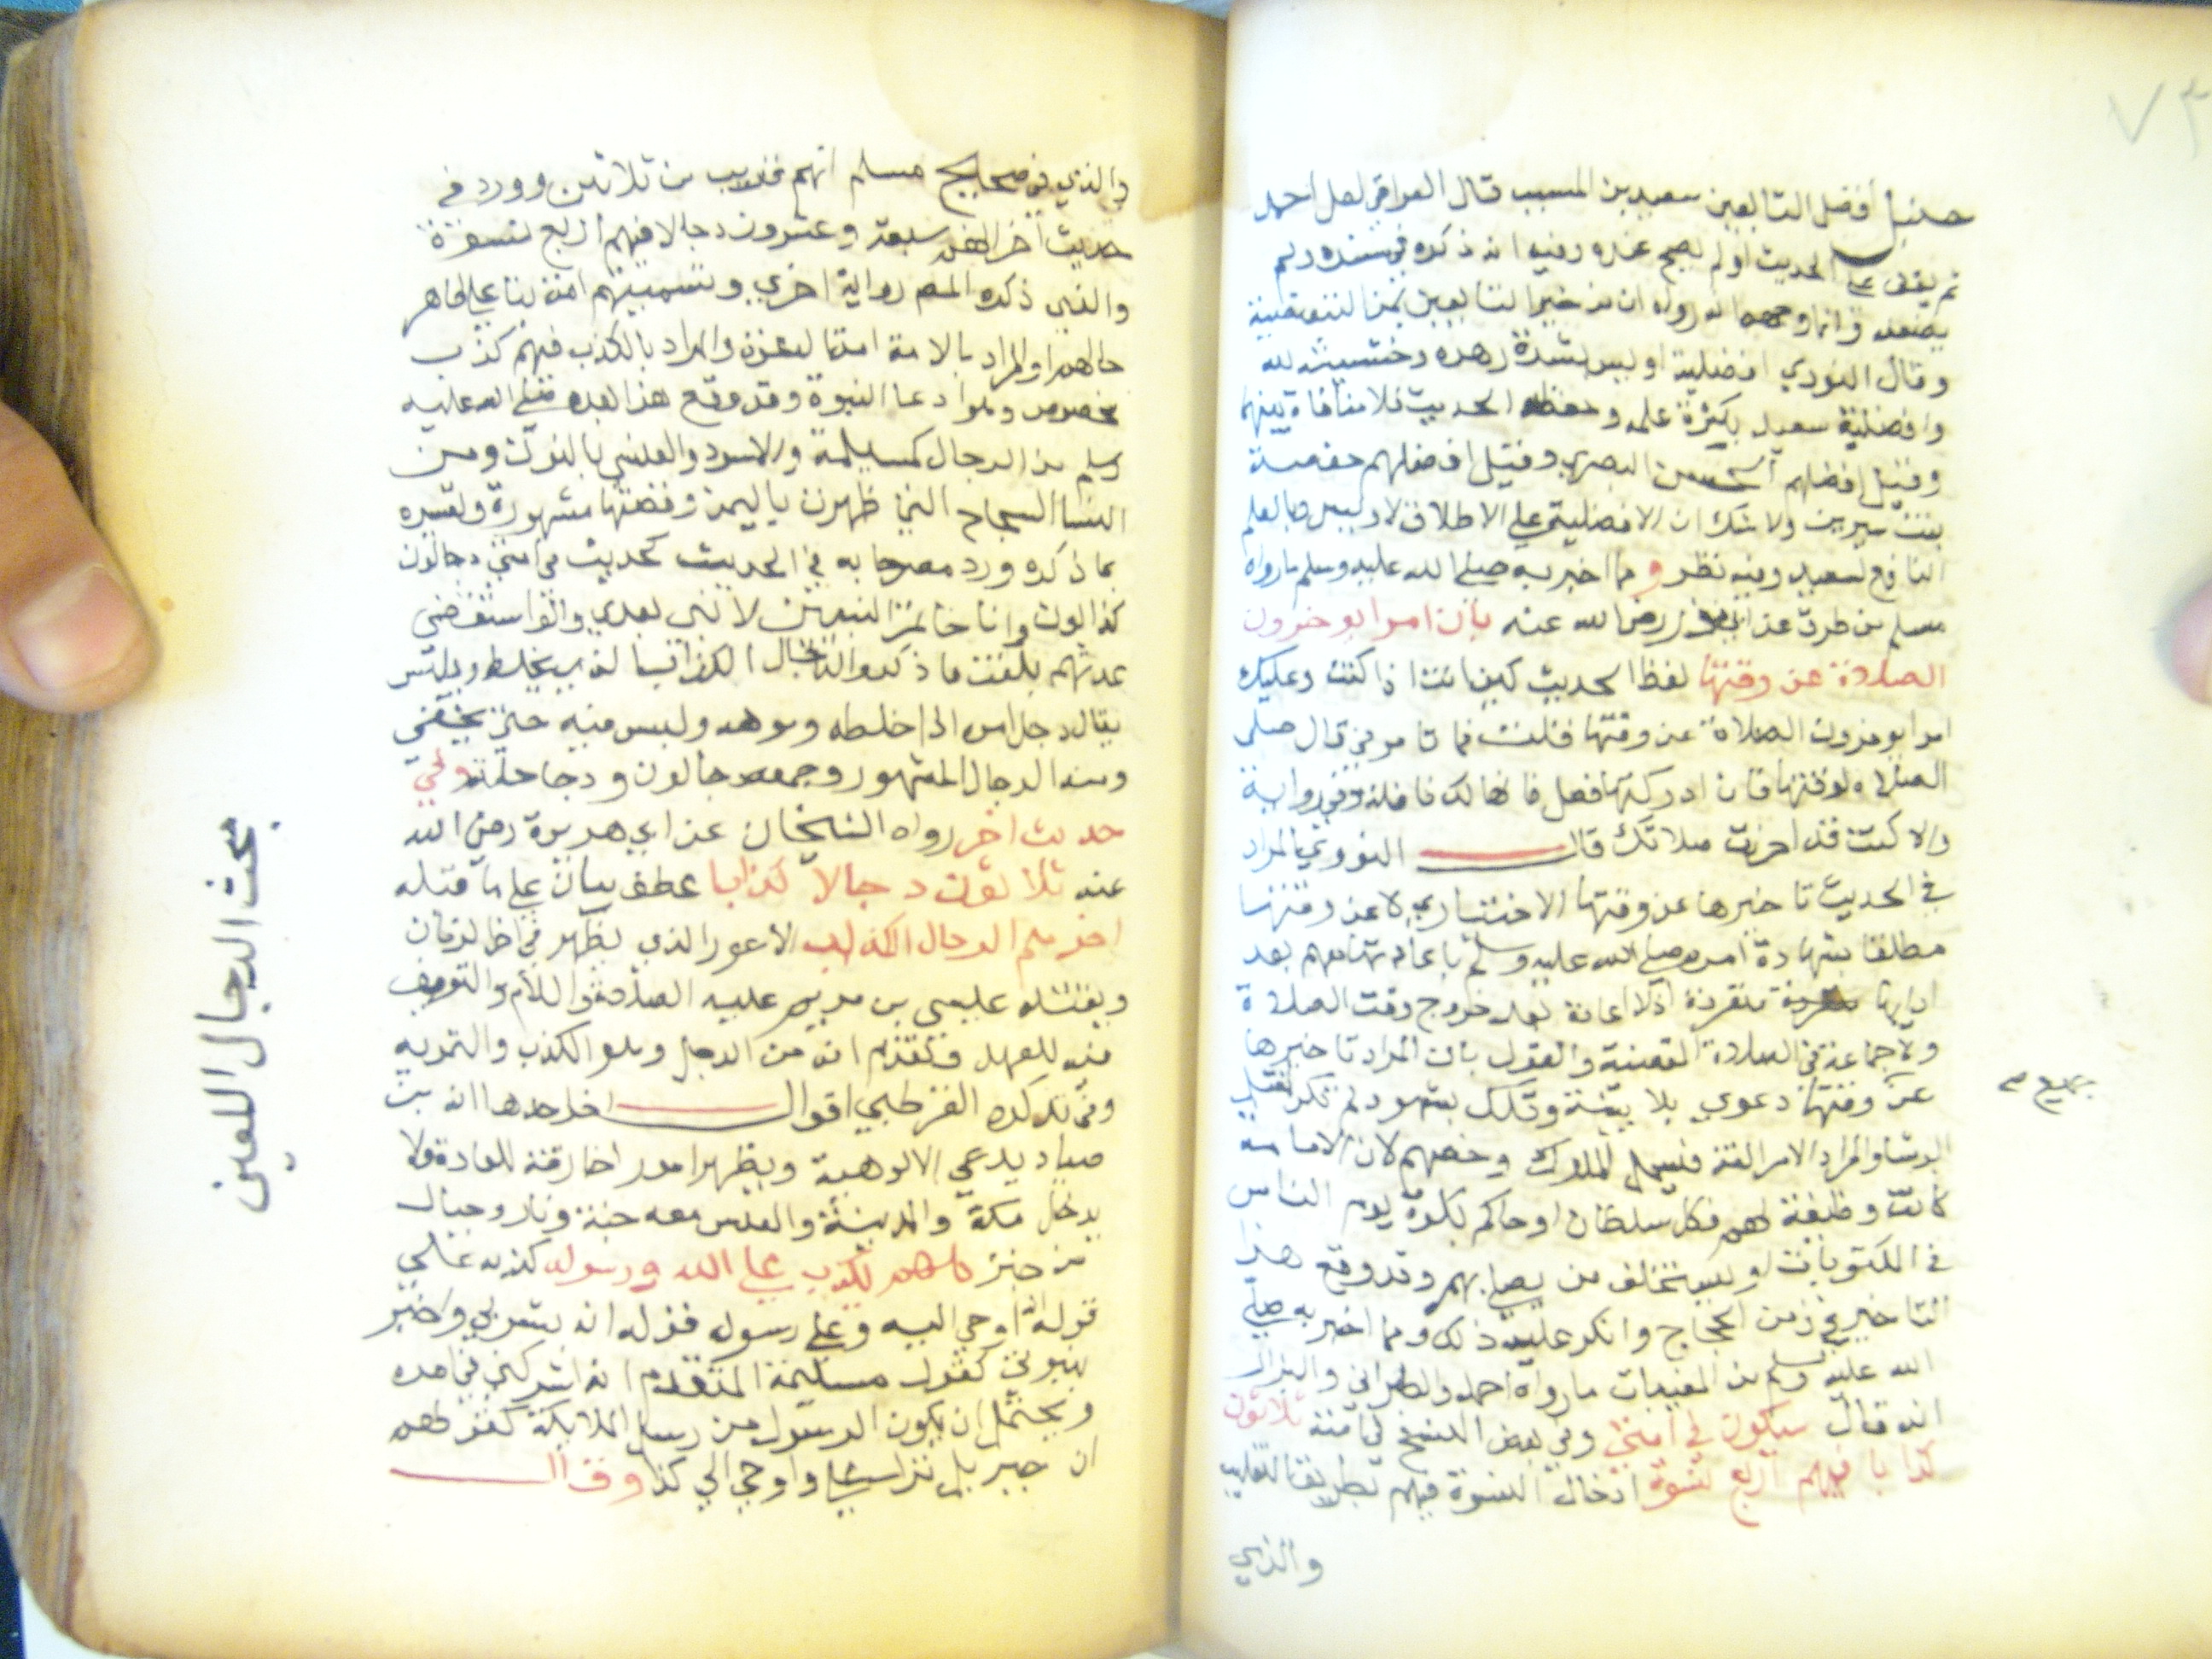 ٧٣
حنبل أفضل التابعين سعيد بن المسيب قال العراقي لعل احمد
لم يقف على الحديث او لم يصح عنده وفيه انه ذكره في مسنده ولم
يضعفه وانما رواه ان من خير التابعين بمن التبعيضية
وقال النووي افضلية اويس لشدة زهده وخشيته لله
وافضلية سعيد بكثرة علمه وحفظه الحديث فلا منافاة بينهما
وقيل افضلهم الحسن البصري وقيل افضلهم حفصة
بنت سيرين ولا شك ان الافضلية على الاطلاق لاويس والعلم
النافع لسعيد وفيه نظر ومما اخبر به صلى الله عليه وسلم ما رواه
مسلم من طرق عن ابي ذر رضي الله عنه بان امرا يوخرون
الصلاة عن وقتها لفظ الحديث كيف انت اذا كنت وعليك
امرا يوخرون الصلاة عن وقتها قلت فما تامرني قال صلى
الصلاة لوقتها فان ادركتها فصل فانها لك نافلة وفي رواية
والا كنت قد احرزت صلاتك قال النووي المراد
في الحديث تاخيرها عن وقتها الاختياري لا عن وقتها
مطلقا بشهادة امره صلى الله عليه وسلم باعادتها معهم بعد
ادايها منفردة اذ لا اعادة بعد خروج وقت الصلاة
ولا جماعة في الصلاة المقضية والقول بان المراد تاخيرها
عن وقتها دعوي بلا بينة وتلك بشهود لم تذكر
والمراد الامرا لغة فيشمل الملوك وخصهم لان الامامة
كانت وظيفة لهم فكل سلطان او حاكم بكورة يوم الناس
في المكتوبات او يستخلف من يصلي بهم وقد وقع هذا
التاخير في زمن الحجاج وانكر عليه ذلك ومما اخبر به صلى
الله عليه وسلم من المغيبات ما رواه احمد والطبراني والبزار
انه قال سيكون في امتي وفي بعض النسخ في امته ثلاثون
كذابا فيهم اربع نسوة ادخال النسوة فيهم بطريق التغليب
والذي
والذي في صحيح مسلم انهم قريب من ثلاثين وورد في
حديث آخر انهم سبعة وعشرون دجالا فيهم اربع نسوة
والذي ذكره المص رواية اخري وتسميتهم امته بنا على ظاهر
حالهم او المراد بالامة امة الدعوة والمراد بالكذب فيهم كذب
مخصوص وهو ادعا النبوة وقد وقع هذا بعده صلى الله عليه
وسلم من الرجال كمسيلمة والاسود والعنسي بالنون ومن
النسا السجاح التي ظهرت باليمن وقصتها مشهورة وتفسيره
بما ذكره ورد مصرحا به في الحديث كحديث في امتي دجالون
كذابون وانا خاتم النبيين لا نبي بعدي ولو استقصي
عدتهم بلغت ما ذكر والدجال الكذاب لانه يخلط ويلبس
يقال دجل امره اذا خلطه وموهه ولبس فيه حتى يختفي
ومنه الدجال المشهور وجمعه دجالون ودجاجلة وفي
حديث اخر رواه الشيخان عن ابي هريرة رضي الله
عنه ثلاثون دجالا كذابا عطف بيان على ما قبله
اخرهم الدجال الكذاب الاعور الذي يظهر في اخر الزمان
ويقتله عيسى بن مريم عليه الصلاة والسلام والتعريف
فيه للعهد وتقدم انه من الدجل وهو الكذب والتمويه
وفي تذكرة القرطبي اقوال احدها انه ابن
صياد يدعي الالوهية ويظهر امورا خارقة للعادة ولا
يدخل مكة والمدينة والقدس معه جنة ونار وجبال
من خبز كلهم يكذب على الله ورسوله كذبه على
قوله انه اوحي اليه وعلى رسوله قوله انه بشر بي واخبر
بنبوتي كقول مسيلمة المتقدم انه اشركني في امره
ويحتمل ان يكون الرسول من رسل الملايكة كقولهم
ان جبريل نزل علينا واوحي الي كذا وقال
مبحث الدجال اللعين